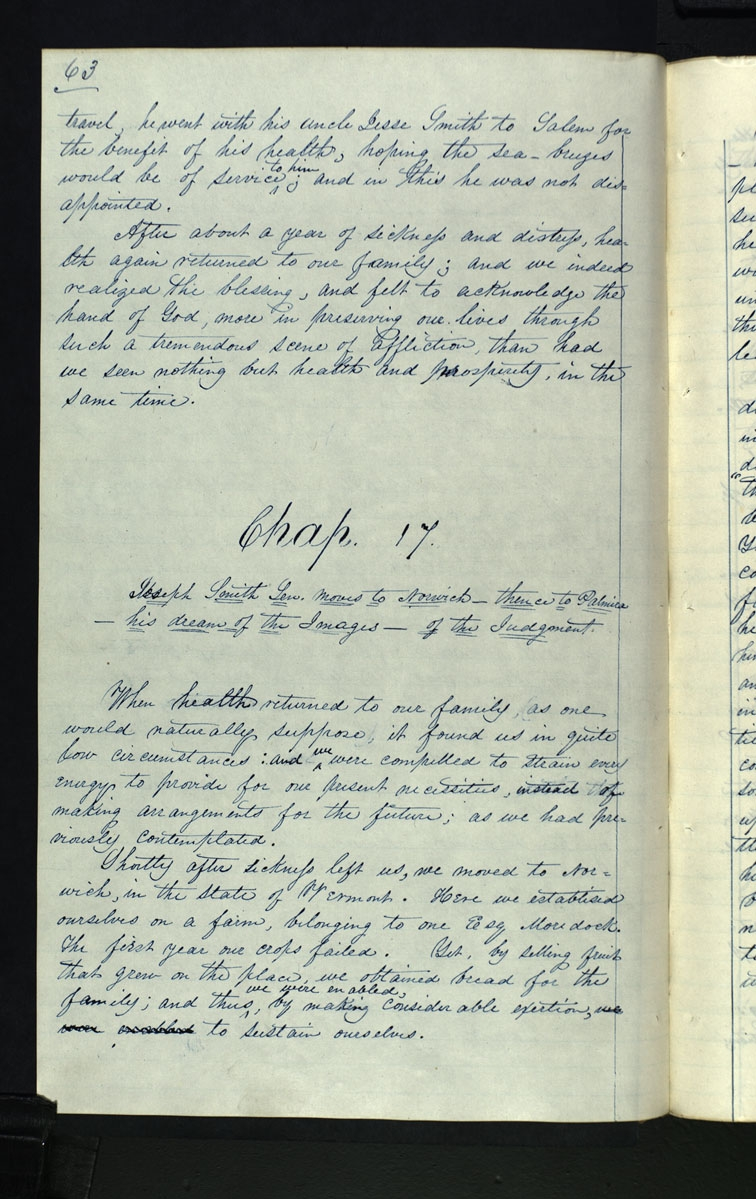 63
travel, he went with his uncle Jesse Smith to Salem for
the benefit of his health, hoping the sea-brezes
would be of service to him; and in this he was not dis=
appointed.
After about a year of sickness and distress, hea-
lth again returned to our family; and we indeed
realized the blessing, and felt to acknowledge the
hand of God, more in preserving our lives through
such a tremendous scene of affliction, than had
we seen nothing but health and prosperity, in the
same time.
Chap. 17.
Joseph Smith Sen. moves to Norwich — thence to Palmira
— his dream of the Images — of the Judgment.
When health returned to our family, as one
would naturally suppose, it found us in quite
low circumstances: and we were compelled to strain every
energy to provide for our present necessities, instead of
making arrangements for the future; as we had pre-
viously contemplated.
Shortly after sickness left us, we moved to Nor=
wich, in the state of Vermont. Here we establised
ourselves on a farm, belonging to one Esq. Moredock.
The first year our crops failed. Yet, by selling fruit
that grew on the place, we obtained bread for the
family; and thus, we were enabled, by making considerable exertion, we
were enabled to sustain ourselves.